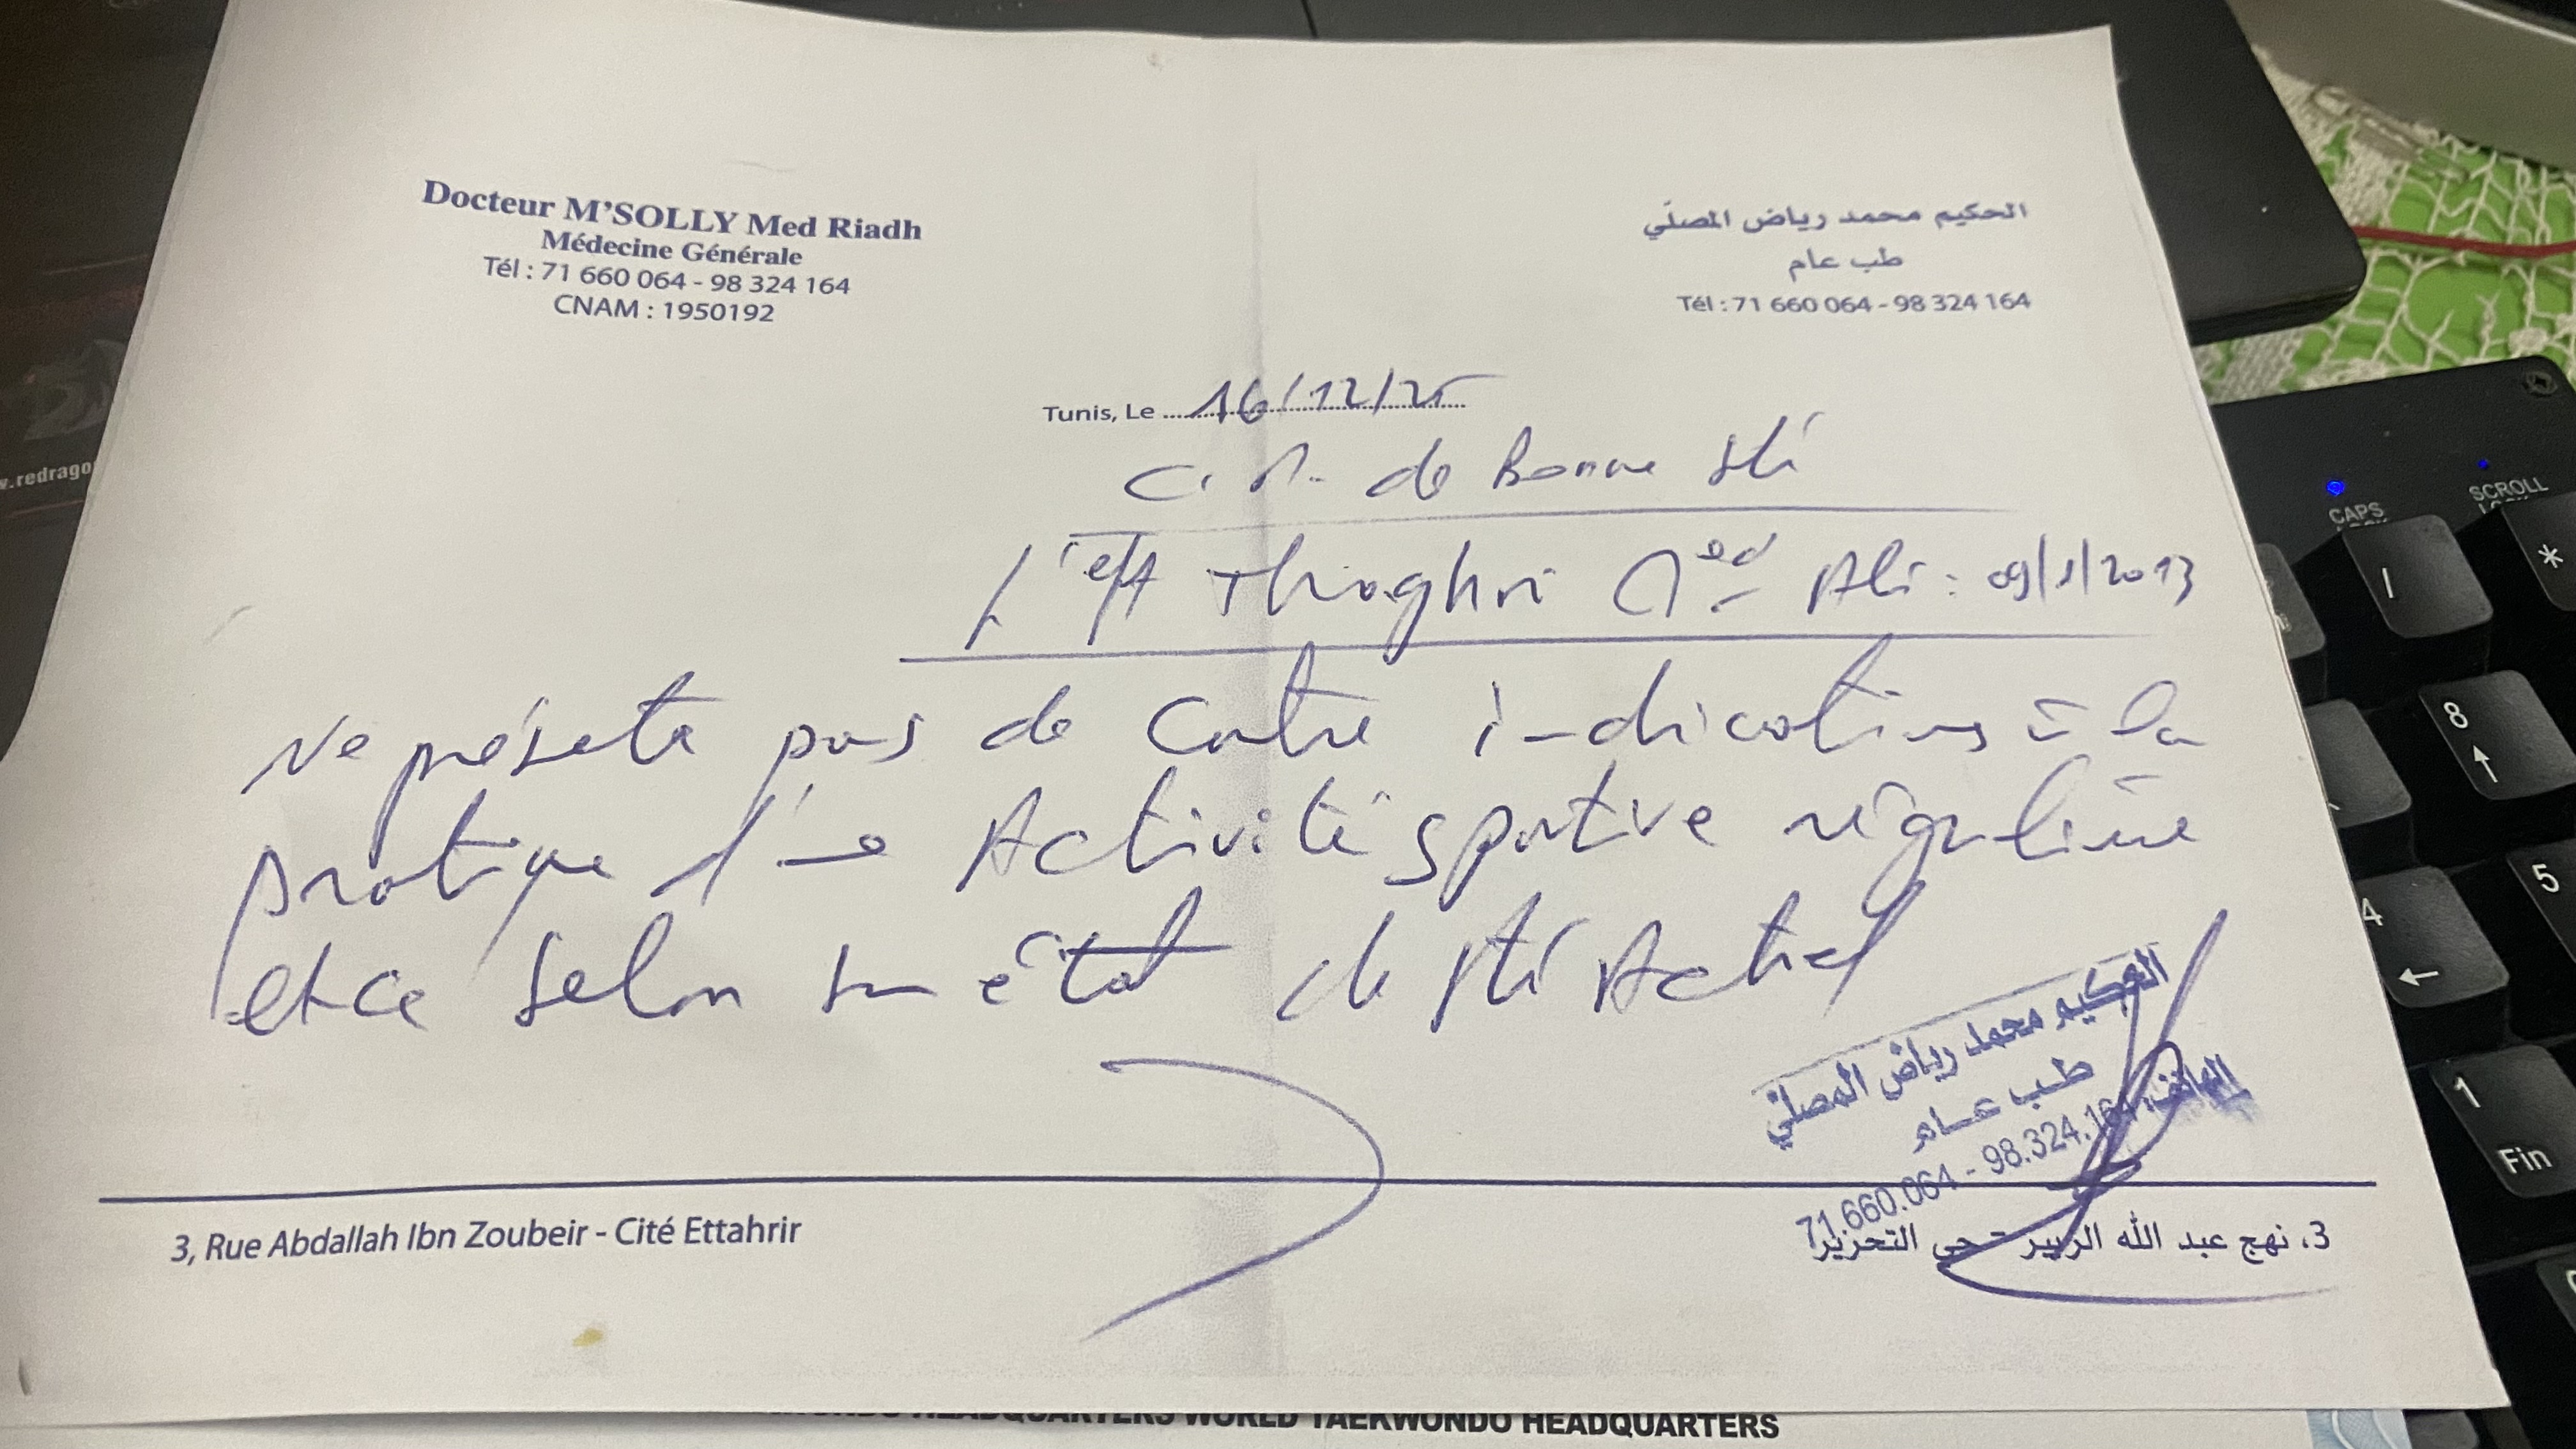 Docteur M'SOLLY Med Riadh
Médecine Générale
Tél : 71 660 064 - 98 324 164
CNAM : 1950192
الحكيم محمد رياض المصلّي
طب عام
Tél : 71 660 064 - 98 324 164
Tunis, Le 16/12/25
C. M. de Bonne Sté
Thioghri Med Ali : 09/1/2013
Ne présete pas de Cotre indications à la
pratique d'une Activité sportive régulière
et ce selon son état de Sté Actuel
الحكيم محمد رياض المصلّي
طب عام
الهاتف: 71.660.064 - 98.324.164
3, Rue Abdallah Ibn Zoubeir - Cité Ettahrir
3، نهج عبد الله الزبير - حي التحرير
HEADQUARTERS WORLD TAEKWONDO HEADQUARTERS
CAPS
SCROLL
*
/
8
5
4
1
Fin